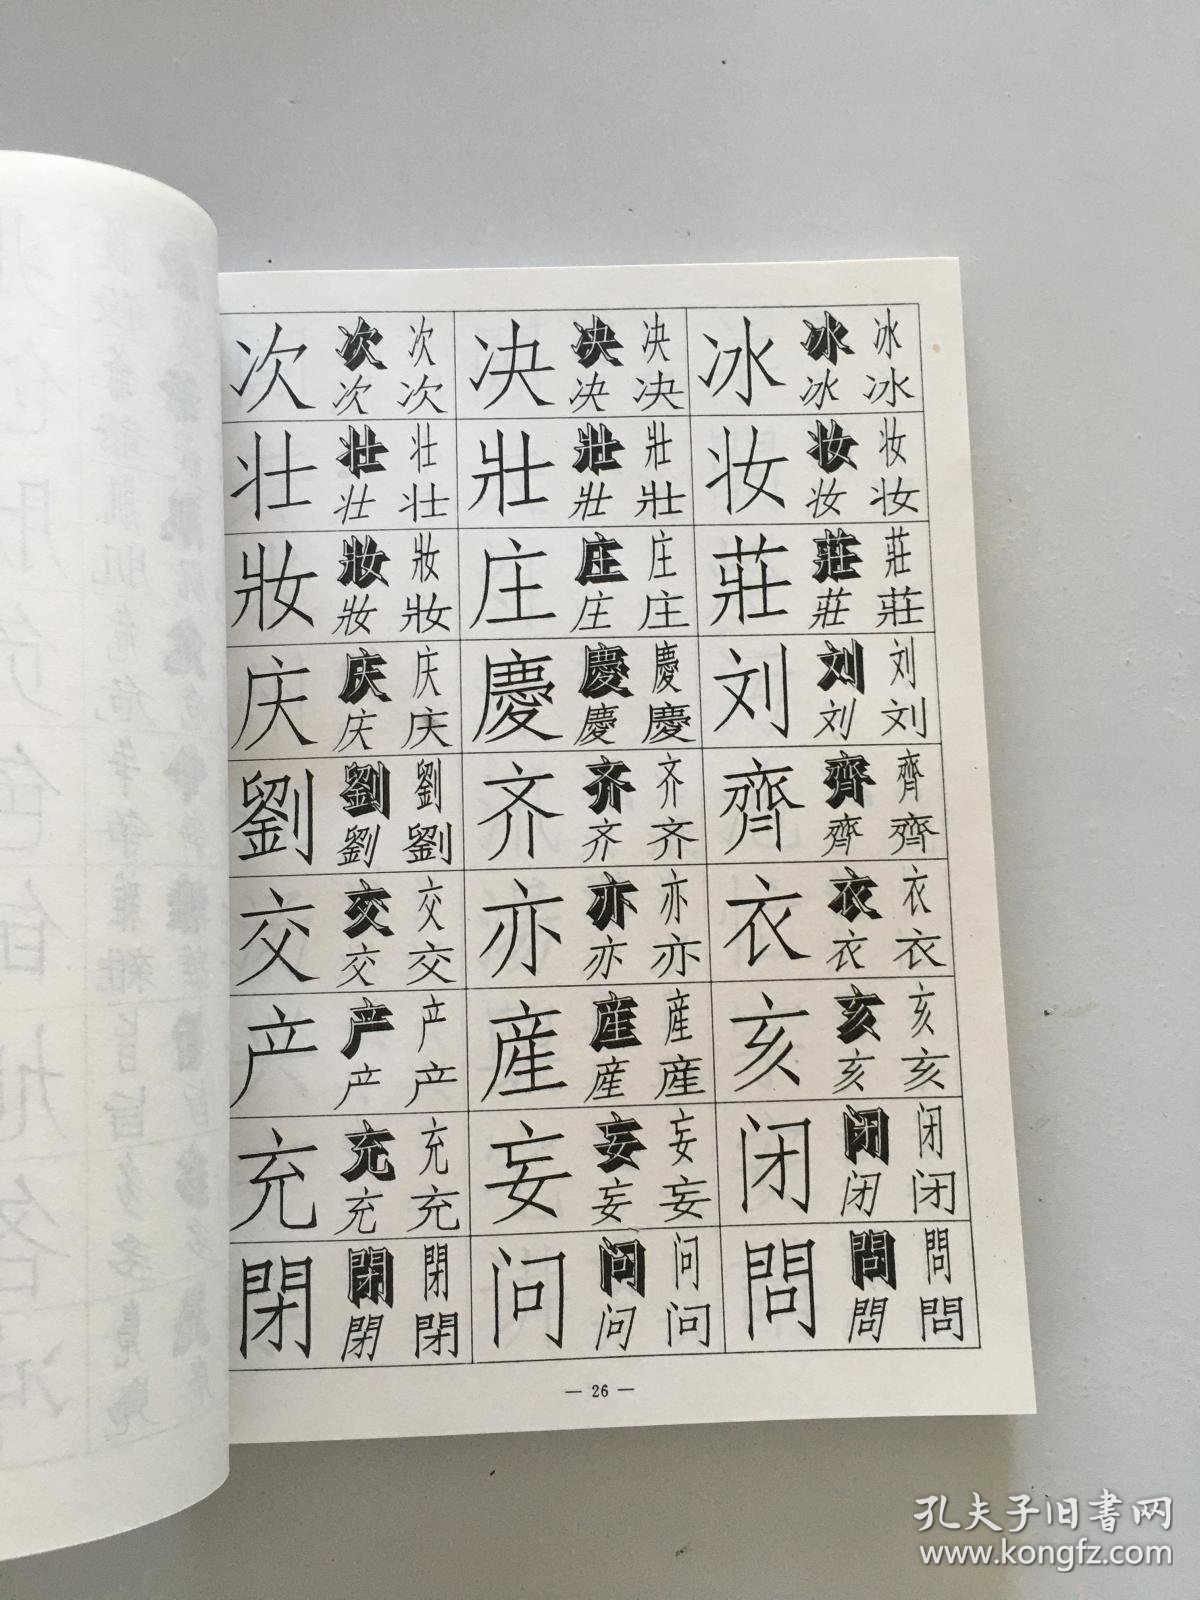 次 次 次 决 决 决 冰 冰 冰
次 次 决 决 冰 冰
壮 壮 壮 壯 壯 壯 妆 妆 妆
壮 壮 壯 壯 妆 妆
妝 妝 妝 庄 庄 庄 莊 莊 莊
妝 妝 庄 庄 莊 莊
庆 庆 庆 慶 慶 慶 刘 刘 刘
庆 庆 慶 慶 刘 刘
劉 劉 劉 齐 齐 齐 齊 齊 齊
劉 劉 齐 齐 齊 齊
交 交 交 亦 亦 亦 衣 衣 衣
交 交 亦 亦 衣 衣
产 产 产 産 産 産 亥 亥 亥
产 产 産 産 亥 亥
充 充 充 妄 妄 妄 闭 闭 闭
充 充 妄 妄 闭 闭
閉 閉 閉 问 问 问 問 問 問
閉 閉 问 问 問 問
— 26 —
孔夫子旧书网
www.kongfz.com